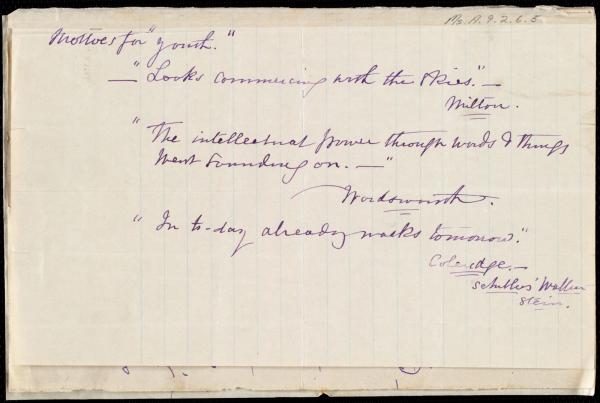 Ms. A. 9. 2. 6. 5
Mottoes for "youth."
— "Looks commercing with the skies." —
Milton.
"The intellectual power through words & things
Went sounding on. — "
Wordsworth.
"In to-day already walks tomorrow."
Coleridge. —
Schiller's Wallen
stein.